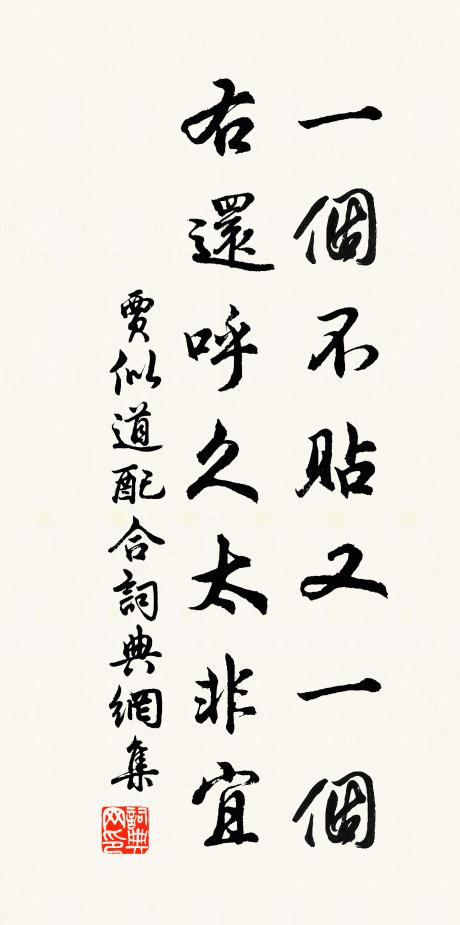 一個不貼又一個
右還呼久太非宜
賈似道配合詞典網集
詞典網印